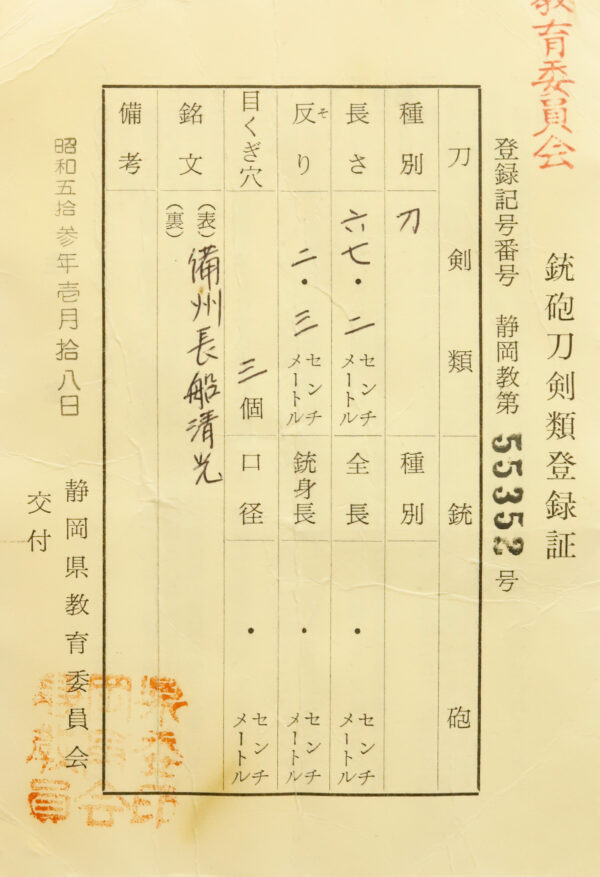 教育委員会
銃砲刀剣類登録証
登録記号番号 静岡教第 55352 号
刀剣類 銃砲
種別 刀 種別
長さ 六七・二 センチメートル 全長 ・ センチメートル
反り そ 二・三 センチメートル 銃身長 ・ センチメートル
目くぎ穴 三個 口径 ・ センチメートル
銘文 (表) 備州長船清光
(裏)
備考
昭和五拾参年壱月拾八日
静岡県教育委員会
交付